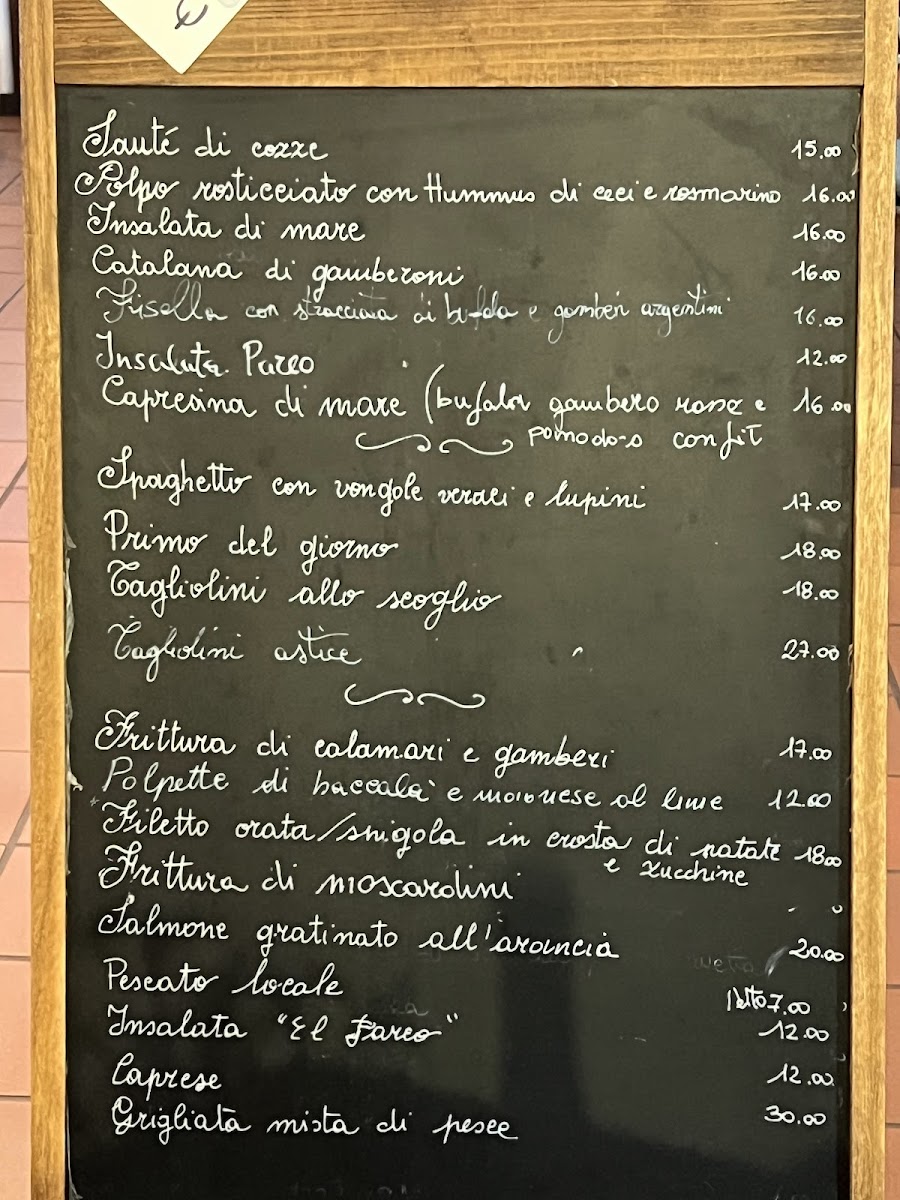 €
Sauté di cozze 15.00
Polpo rosticciato con Hummus di ceci e rosmarino 16.00
Insalata di mare 16.00
Catalana di gamberoni 16.00
Frisella con stracciata di bufala e gamberi argentini 16.00
Insalata Pareo 12.00
Capresina di mare (bufala gambero rosso e 16.00
pomodoro confit
Spaghetto con vongole veraci e lupini 17.00
Primo del giorno 18.00
Tagliolini allo scoglio 18.00
Tagliolini astice 27.00
Frittura di calamari e gamberi 17.00
Polpette di baccalà e maionese al lime 12.00
Filetto orata/spigola in crosta di patate 18.00
e zucchine
Frittura di moscardini
Salmone gratinato all'arancia 20.00
Pescato locale 7.00
Insalata "El Pareo" 12.00
Caprese 12.00
Grigliata mista di pesce 30.00